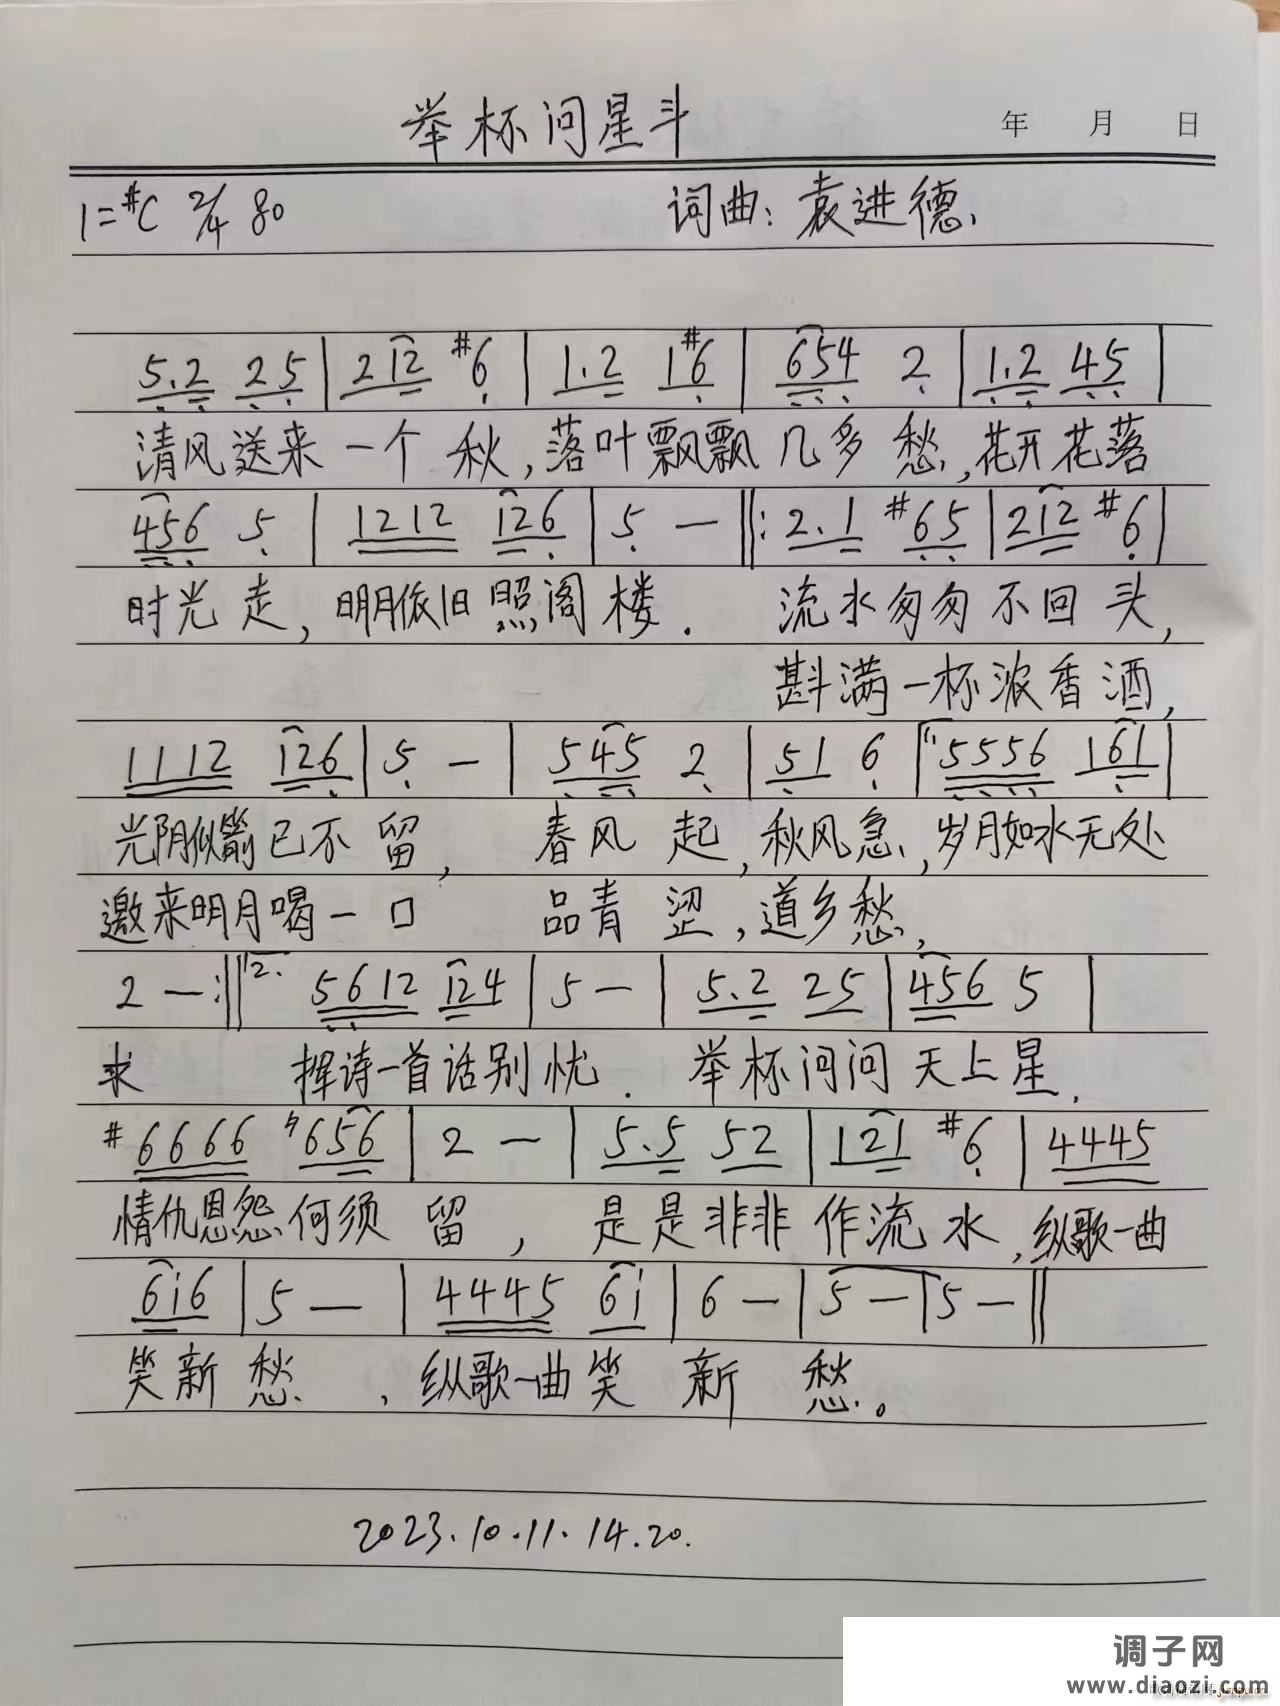 举杯问星斗
年 月 日
1=#C 2/4 80 词曲:袁进德.
5.2 25 | 212 #6 | 1.2 1#6 | 654 2 | 1.2 45 |
清风送来一个秋,落叶飘飘几多愁,花开花落
456 5 | 1212 126 | 5 — ‖: 2.1 #65 | 212 #6 |
时光走,明月依旧照阁楼. 流水匆匆不回头,
斟满一杯浓香酒,
1112 126 | 5 — | 545 2 | 51 6 | 1. 5556 161 |
光阴似箭已不留, 春风起,秋风急,岁月如水无处
邀来明月喝一口 品青涩,道乡愁,
2 — :‖ 2. 5612 124 | 5 — | 5.2 25 | 456 5 |
求 挥诗一首话别忧. 举杯问问天上星,
#6666 ♮656 | 2 — | 5.5 52 | 121 #6 | 4445
情仇恩怨何须留, 是是非非作流水,纵歌一曲
6i6 | 5 — | 4445 6i | 6 — | 5 — | 5 — ‖
笑新愁,纵歌一曲笑新愁。
2023.10.11.14.20.
调子网
www.diaozi.com